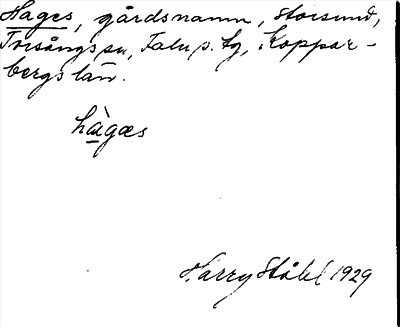 Hages, gårdsnamn, Storsund,
Torsångs sn, Falu s. tg, Koppar-
bergs län.
hàgæs
Harry Ståhl 1929